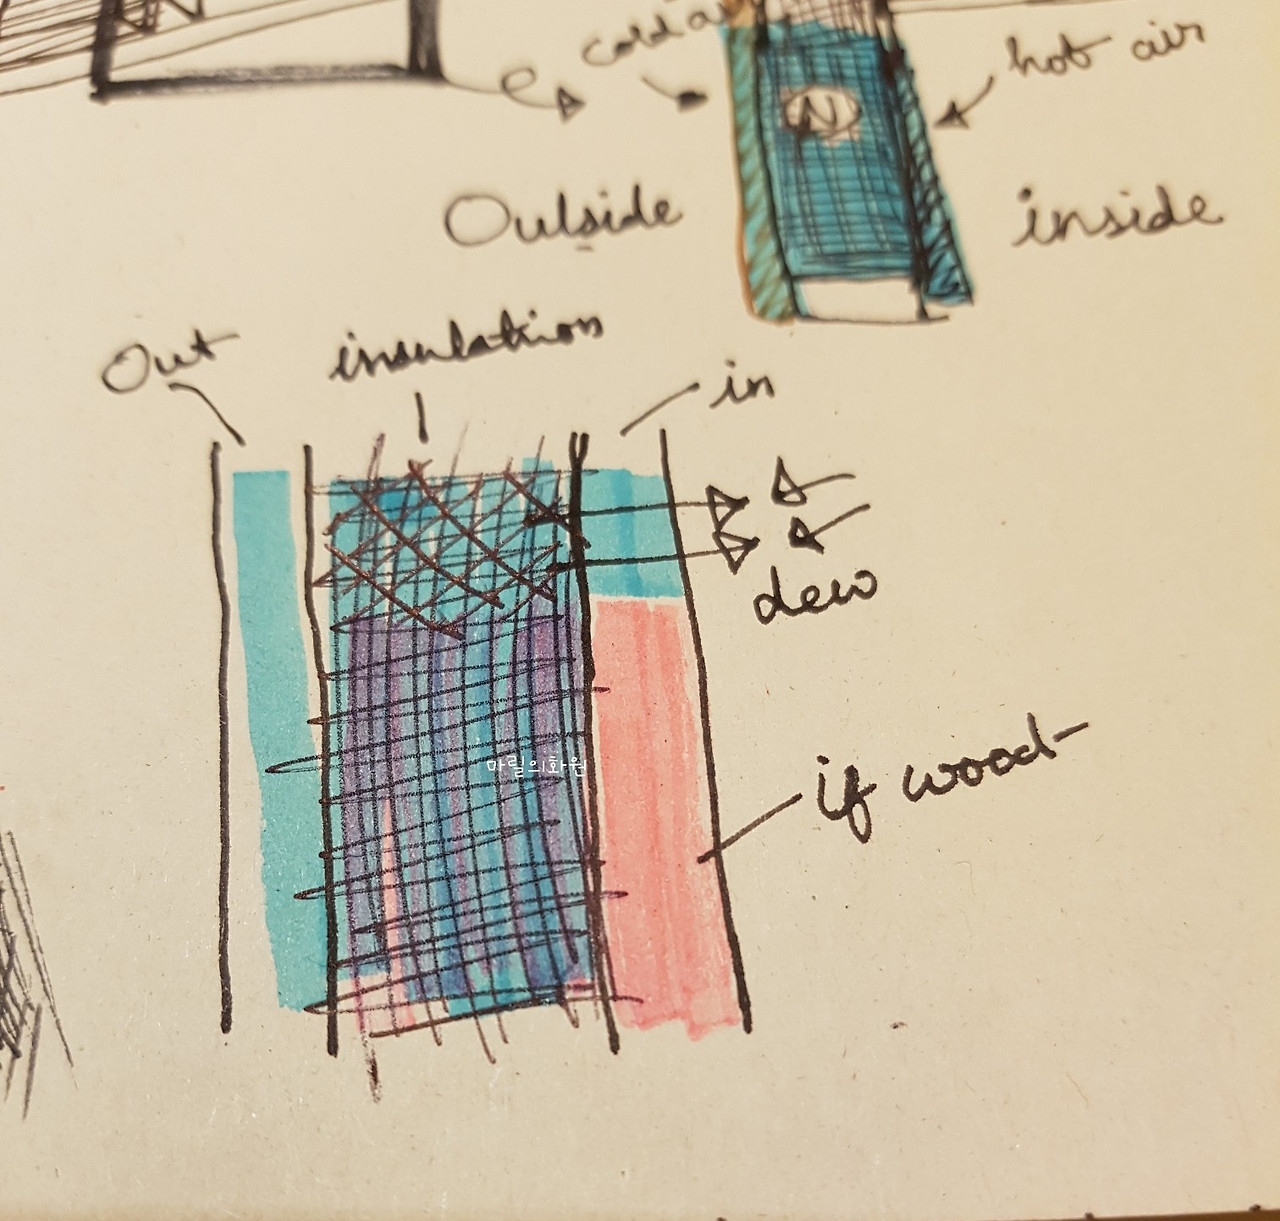 cold a
hot air
N
Outside
inside
Out
insulation
in
dew
마릴의화원
if wood